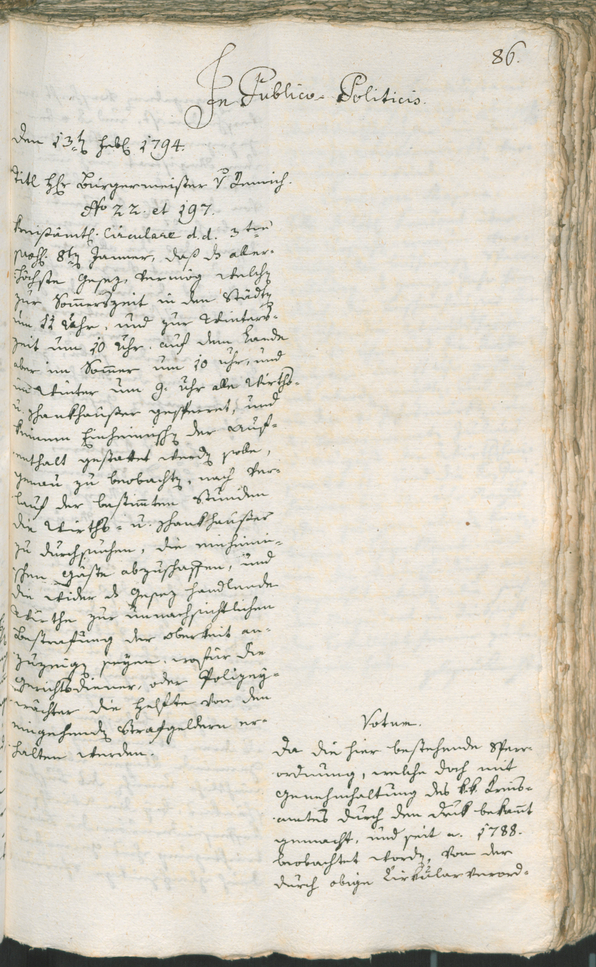 86.
In Publico-Politicis.
den 13t Febr 1794.
Titl Hr Bürgermeister v Jennich.
No 22. et 197.
Kreisämtl. Circulare d.d. 3ten
prs. 8t Jänner, daß das aller-
höchste Gesez, vermög welchen
zur Sommerszeit in den Städten
um 11 Uhr, und zur Winters-
zeit um 10 Uhr, auf dem Lande
aber im Sommer um 10 Uhr, und
im Winter um 9. Uhr alle Wirths-
u. Schankhäuser gesperret, und
keinem Einheimischen der Auf-
enthalt gestattet werden solle,
genau zu beobachten, nach Ver-
lauf der bestimmten Stunden
die Wirths- u. Schankhäuser
zu durchsuchen, die einheimi-
schen Gäste abzuschaffen, und
die wider das Gesez handlende
Wirthe zur unnachsichtlichen
Bestrafung der Obrigkeit an-
zuzeigen seyen. wofür die
Gerichtsdiener, oder Polizey-
wächter die Helfte von den
eingehenden Strafgeldern er-
halten werden.
Votum.
Da die hier bestehende Sperr-
ordnung, welche doch mit
Genehmhaltung des kk Kreis-
amtes durch den Druk bekannt
gemacht, und seit a. 1788.
beobachtet worden, von der
durch obige Cirkularverord-